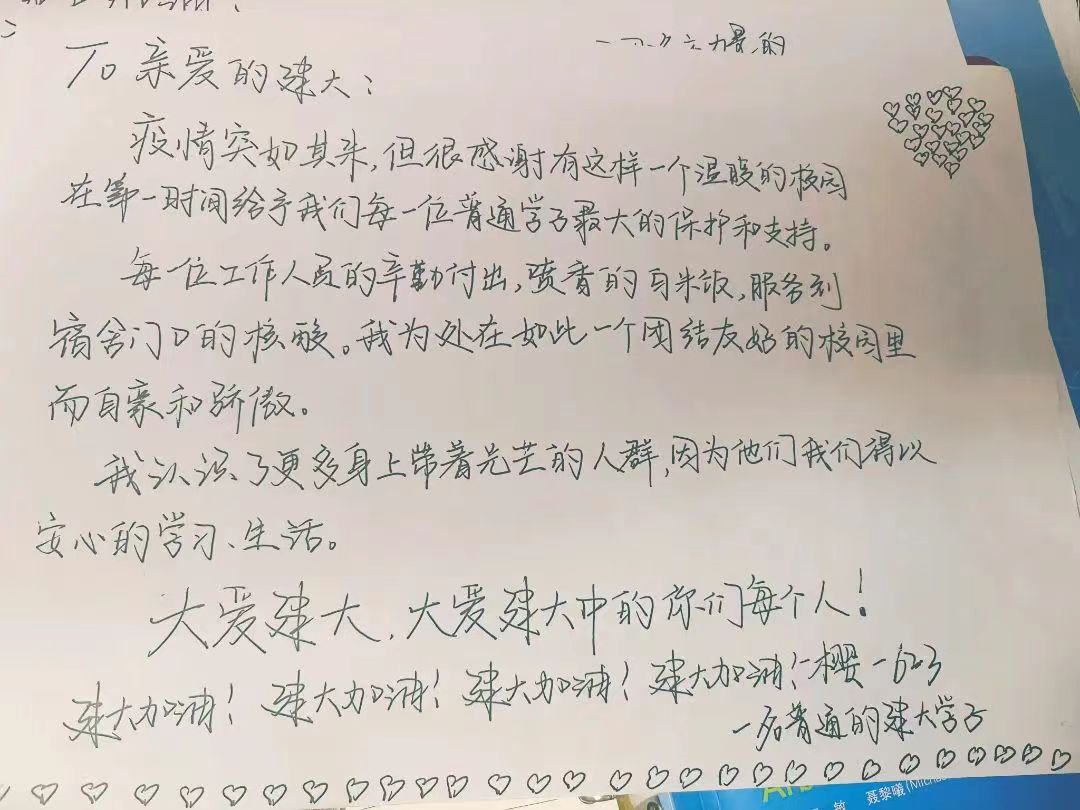 To 亲爱的建大：
疫情突如其来，但很感谢有这样一个温暖的校园
在第一时间给予我们每一位普通学子最大的保护和支持。
每一位工作人员的辛勤付出，喷香的白米饭，服务到
宿舍门口的核酸。我为处在如此一个团结友好的校园里
而自豪和骄傲。
我认识了更多身上带着光芒的人群，因为他们我们得以
安心的学习、生活。
大爱建大，大爱建大中的你们每个人！
建大加油！建大加油！建大加油！建大加油！-樱一603
一名普通的建大学子
敏 聂黎曦(Michae